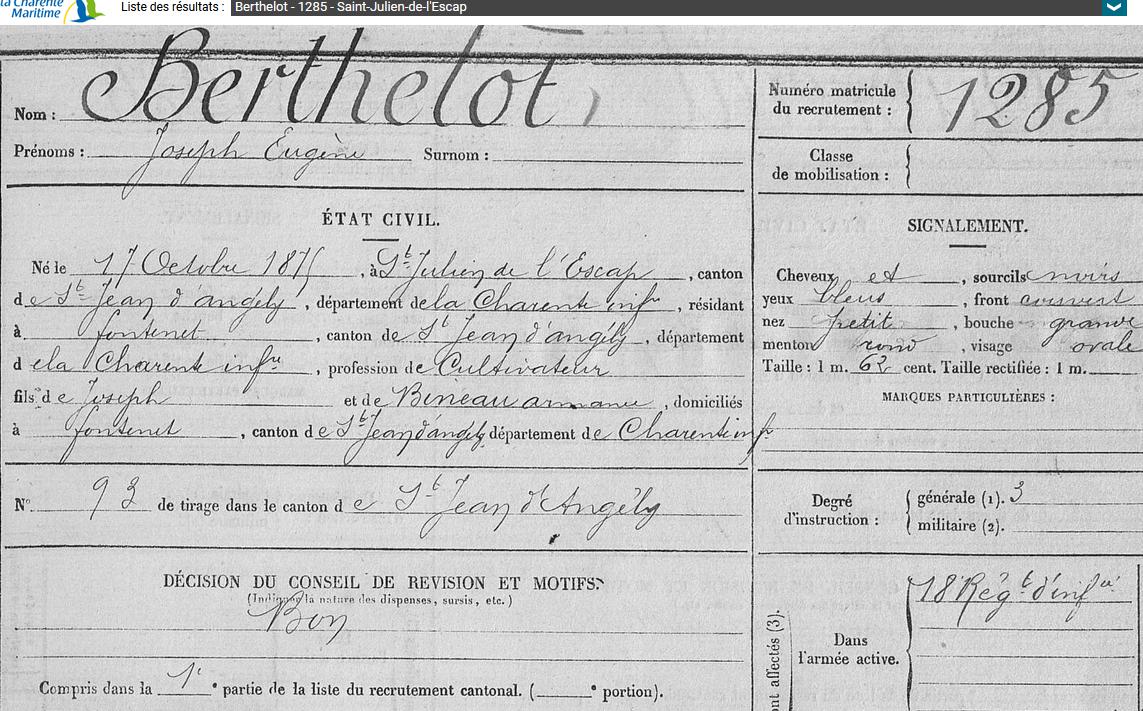 la Charente
Maritime
Liste des résultats : Berthelot - 1285 - Saint-Julien-de-l'Escap
Nom : Berthelot
Numéro matricule du recrutement : 1285
Prénoms : Joseph Eugène Surnom :
Classe de mobilisation :
ÉTAT CIVIL.
Né le 17 Octobre 187 , à St Julien de l'Escap , canton
de St Jean d'angély , département de la Charente infre , résidant
à fontenet , canton de St Jean d'angély , département
de la Charente infre , profession de Cultivateur
fils de Joseph et de Bineau armance , domiciliés
à fontenet , canton de St Jean d'angély département de Charente infr
SIGNALEMENT.
Cheveux et , sourcils noirs
yeux bleus , front couvert
nez petit , bouche grande
menton rond , visage ovale
Taille : 1 m. 62 cent. Taille rectifiée : 1 m.
MARQUES PARTICULIÈRES :
N° 93 de tirage dans le canton de St Jean d'Angély
Degré d'instruction : générale (1). 3
militaire (2).
DÉCISION DU CONSEIL DE REVISION ET MOTIFS.
(Indiquer la nature des dispenses, sursis, etc.)
Bon
Compris dans la 1e partie de la liste du recrutement cantonal. ( e portion).
nt affectés (3).
Dans l'armée active.
18 Régt d'infie